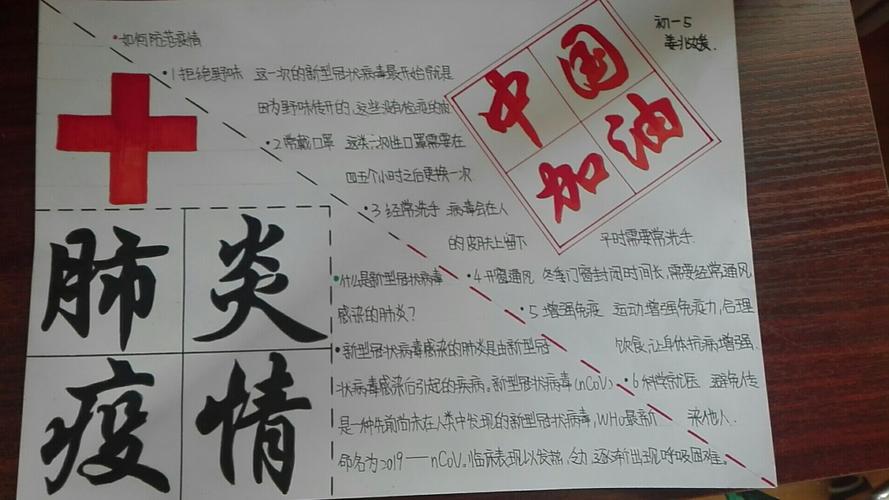 初一5
姜兆媛.
中国
加油
•如何防范疫情
•1拒绝野味 这一次的新型冠状病毒最开始就是
因为野味传开的,这些没有检疫的肉
•2常戴口罩 这类一次性口罩需要在
四五个小时之后更换一次
•3经常洗手 病毒会在人
的皮肤上留下 平时需要常洗手.
•4开窗通风 冬季门窗封闭时间长,需要经常通风
•5增强免疫 运动增强免疫力,合理
饮食,让身体抗病增强.
•6科学就医 避免传
染他人.
肺炎
疫情
•什么是新型冠状病毒
感染的肺炎?
•新型冠状病毒感染的肺炎是由新型冠
状病毒感染后引起的疾病。新型冠状病毒(nCoV)
是一种先前尚未在人类中发现的新型冠状病毒,WHO最新
命名为2019——nCoV。临床表现以发热,乏力,逐渐出现呼吸困难。